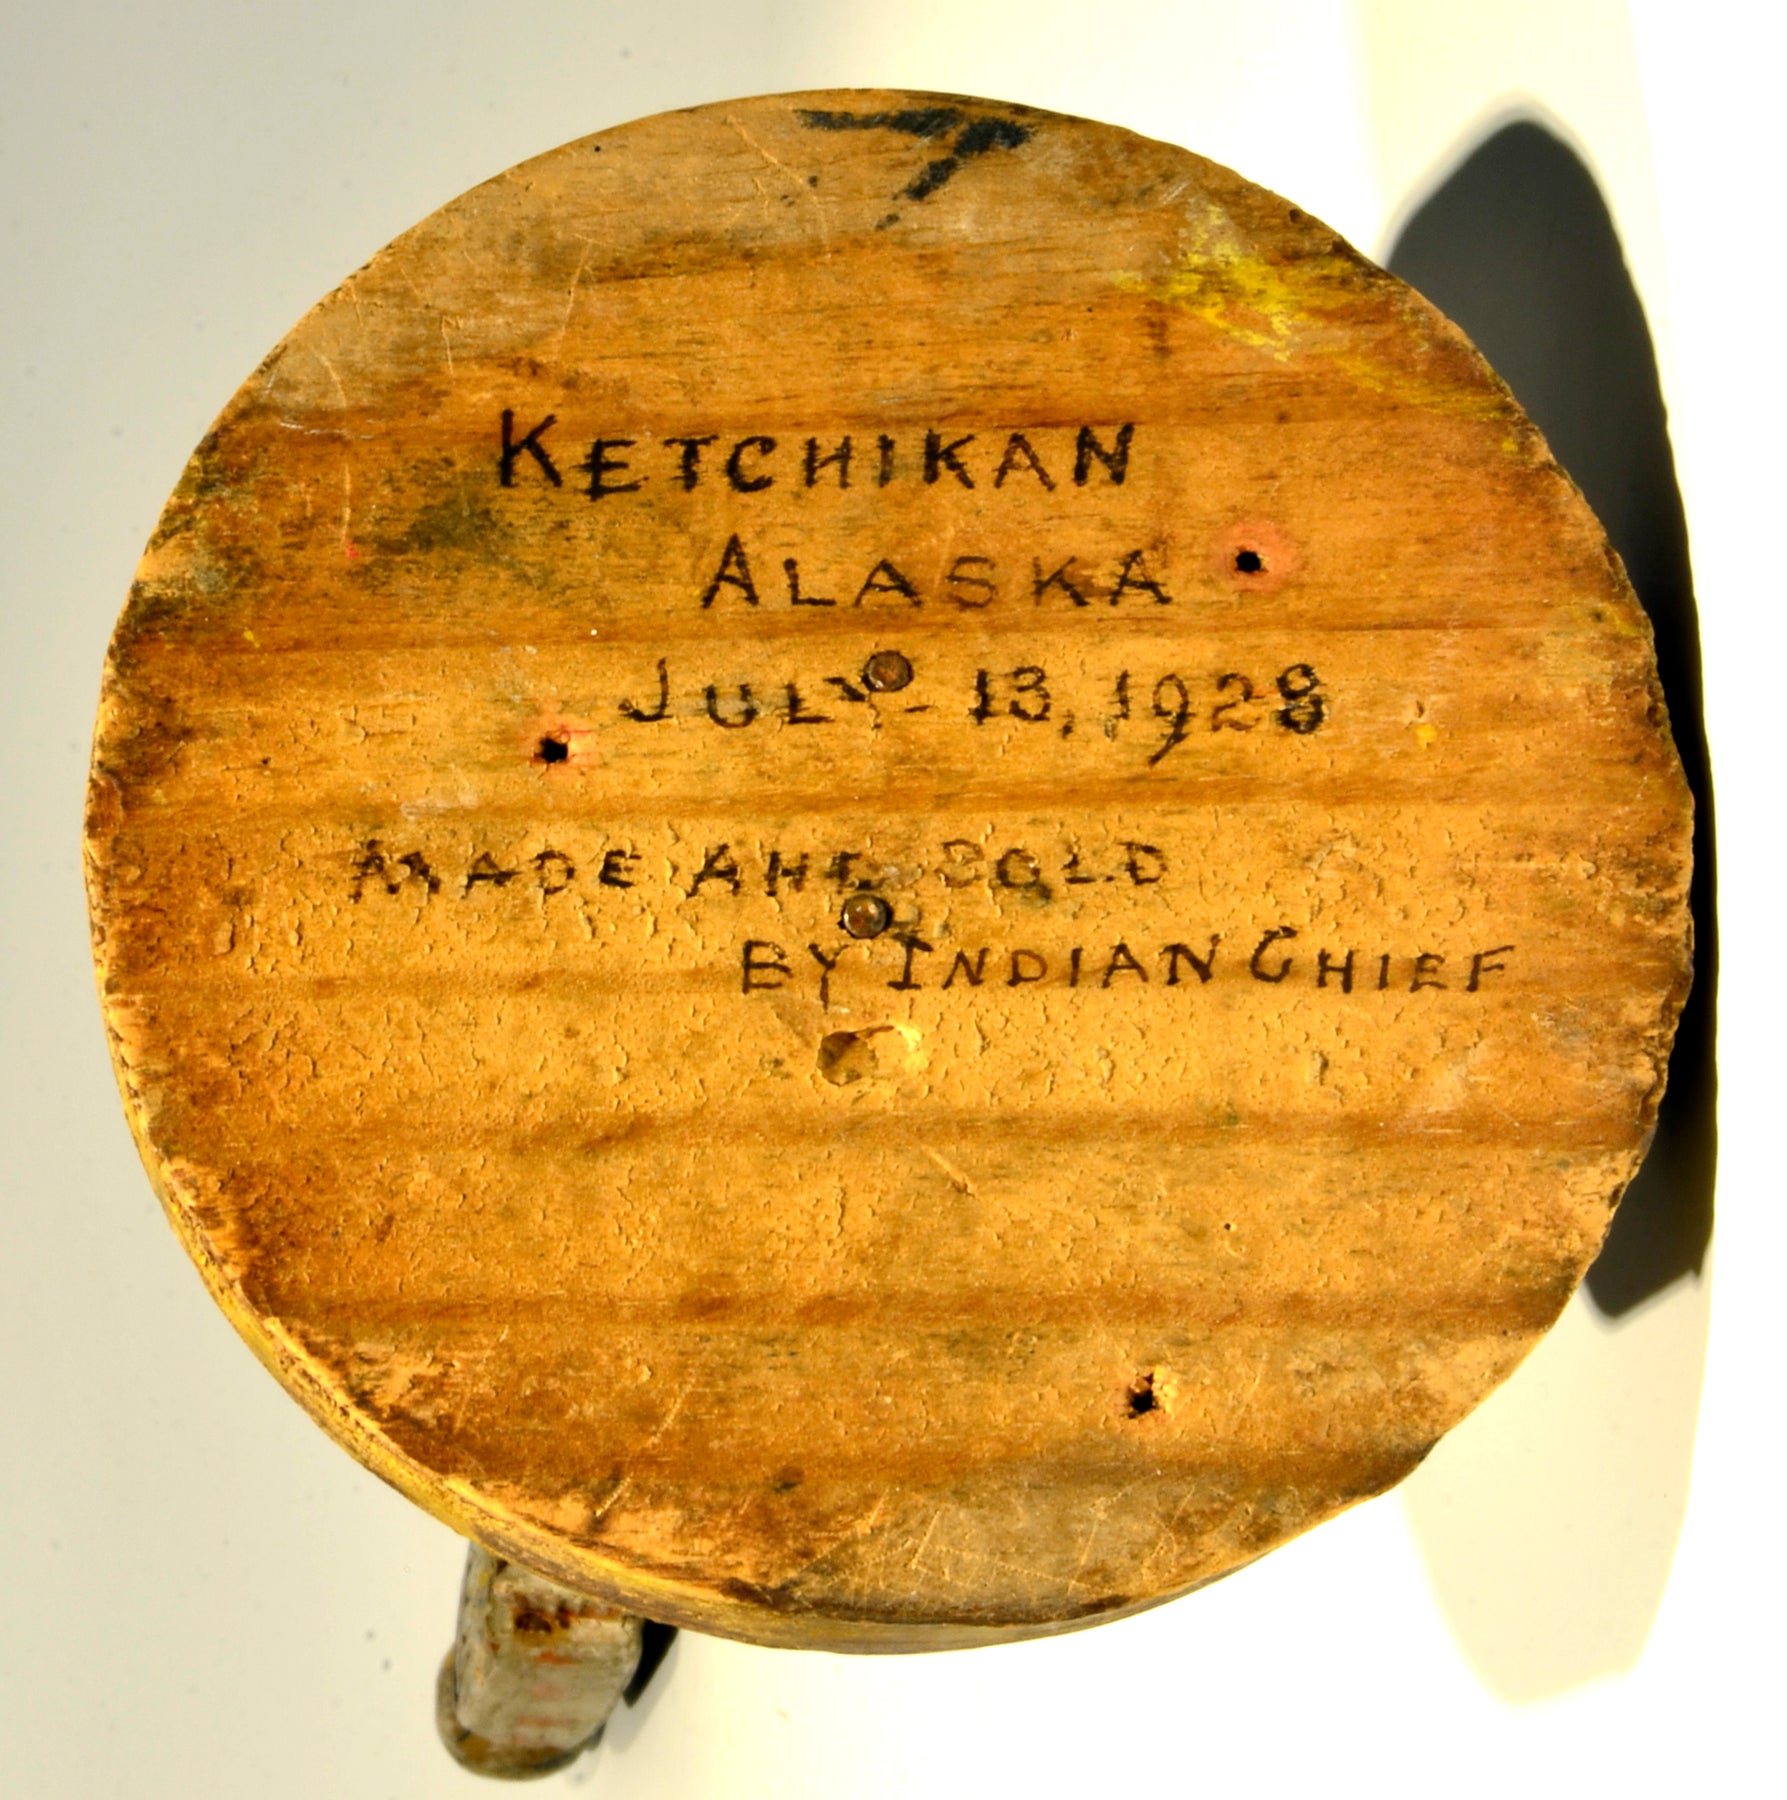 KETCHIKAN
ALASKA
JULY- 13, 1928
MADE AND SOLD
BY INDIAN CHIEF